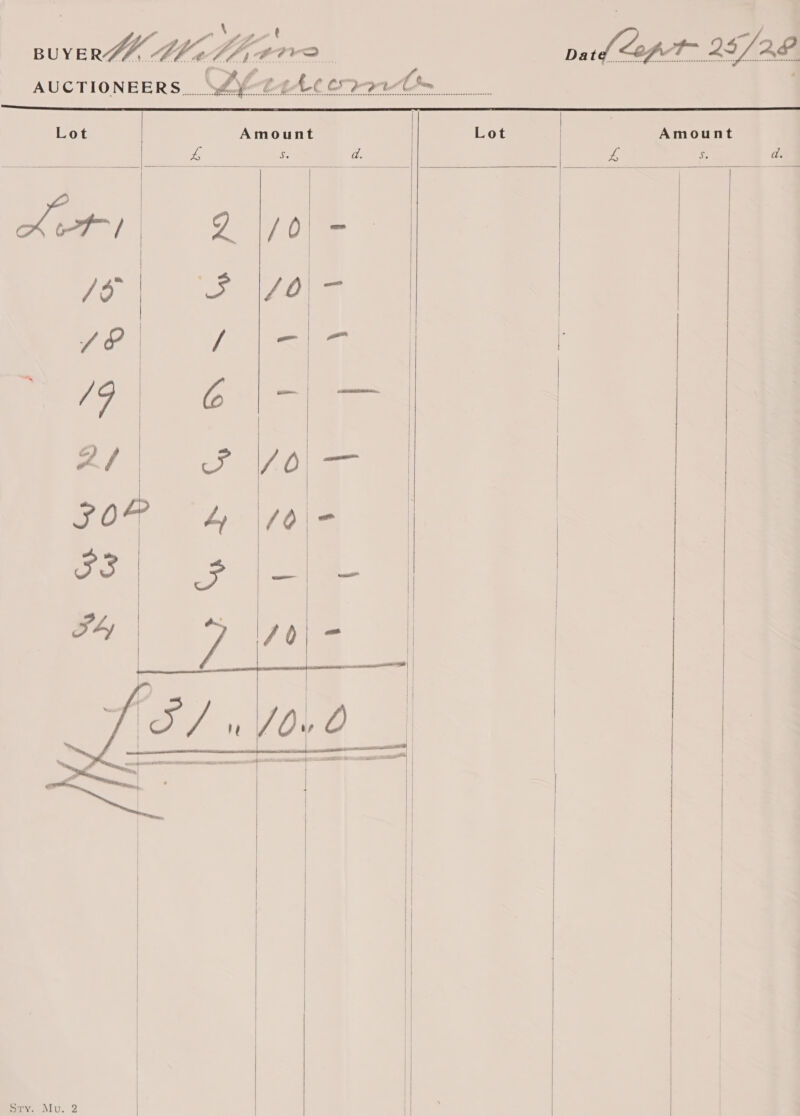 BUYER W. Williams Date Sept 25/28
AUCTIONEERS
Lot Amount Lot Amount
£ s. d. £ s. d.
Lot 1 2 10 -
15 3 10 -
18 1 - -
19 6 - -
21 3 10 -
30A 4 10 -
33 3 - -
34 7 10 -
£31 " 10 " 0
Sty. Mu. 2